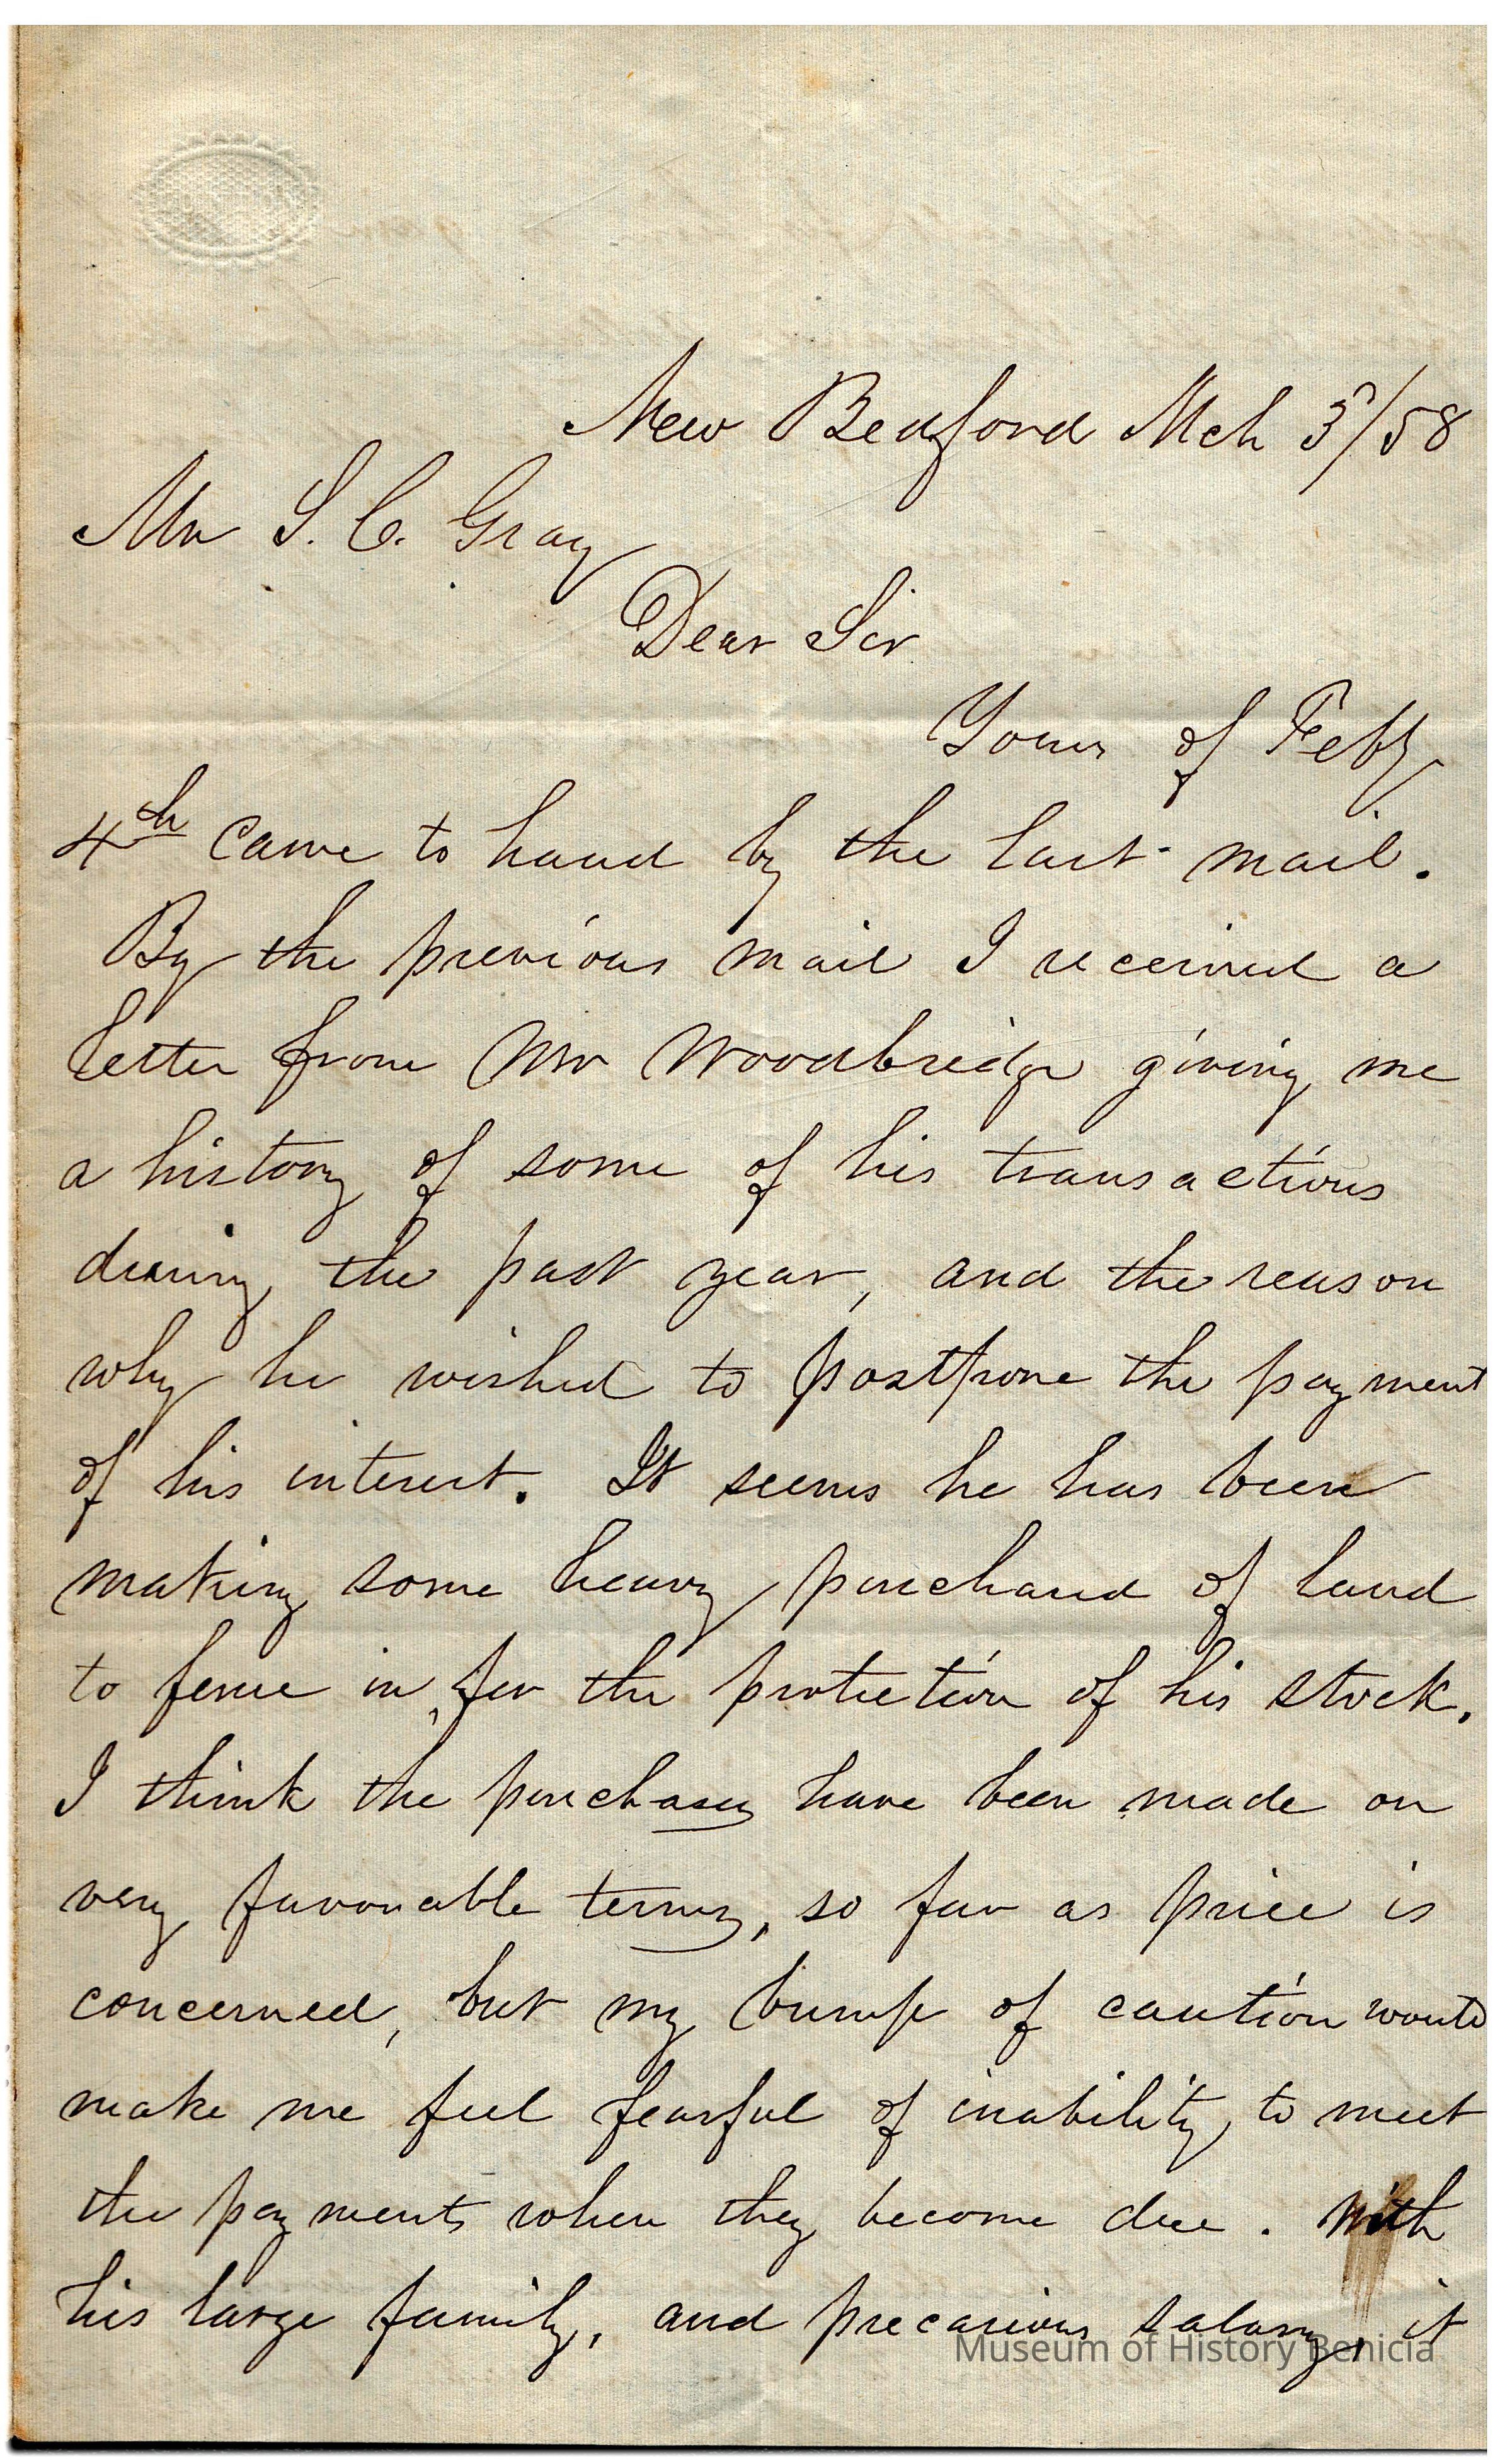 New Bedford Mch 3/58
Mr S. C. Gray
Dear Sir
Yours of Feby
4th came to hand by the last mail.
By the previous mail I received a
letter from Mr Woodbridge giving me
a history of some of his transactions
during the past year, and the reason
why he wished to postpone the payment
of his interest. It seems he has been
making some heavy purchases of land
to fence in, for the protection of his stock.
I think the purchases have been made on
very favorable terms, so far as price is
concerned, but my bump of caution would
make me feel fearful of inability to meet
the payments when they become due. With
his large family, and precarious salary, it
Museum of History Benicia